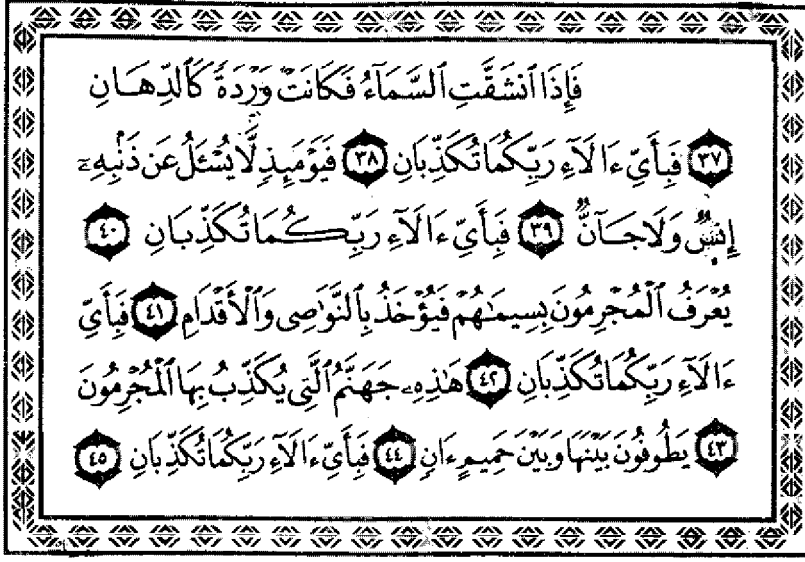 فَإِذَا ٱنشَقَّتِ ٱلسَّمَآءُ فَكَانَتْ وَرْدَةً كَٱلدِّهَانِ
٣٧ فَبِأَىِّ ءَالَآءِ رَبِّكُمَا تُكَذِّبَانِ ٣٨ فَيَوْمَئِذٍ لَّا يُسْـَٔلُ عَن ذَنۢبِهِۦٓ
إِنسٌ وَلَا جَآنٌّ ٣٩ فَبِأَىِّ ءَالَآءِ رَبِّكُمَا تُكَذِّبَانِ ٤٠
يُعْرَفُ ٱلْمُجْرِمُونَ بِسِيمَٰهُمْ فَيُؤْخَذُ بِٱلنَّوَٰصِى وَٱلْأَقْدَامِ ٤١ فَبِأَىِّ
ءَالَآءِ رَبِّكُمَا تُكَذِّبَانِ ٤٢ هَٰذِهِۦ جَهَنَّمُ ٱلَّتِى يُكَذِّبُ بِهَا ٱلْمُجْرِمُونَ
٤٣ يَطُوفُونَ بَيْنَهَا وَبَيْنَ حَمِيمٍ ءَانٍ ٤٤ فَبِأَىِّ ءَالَآءِ رَبِّكُمَا تُكَذِّبَانِ ٤٥